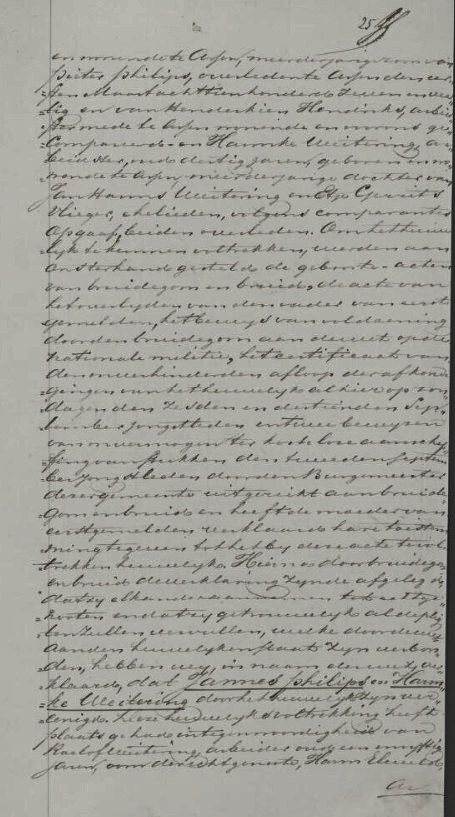 25
en wonende te Aspn, meerderjarige zoon van
Pieter Philips, overleden te Aspn den eer-
sten Maart achttienhonderd zeven en veer-
tig en van Henderkien Hendriks, arbeid-
ster mede te Aspn woonende en voorens ge-
Compareerd en Harmke Meitering, ar-
beidster, oud dertig jaren, geboren en wo-
nende te Aspn, meerderjarige dochter van
Jan Harms Meitering en Etje Gerrits
Vlieger, ehelieden, volgens comparantes
opgaaf, beiden overleden. Om het huwe-
lijk te kunnen voltrekken, werden aan
ons ter hand gesteld de geboorte-acten
van bruidegom en bruid, de acte van
het overlijden van den vader van eerst-
gemelden, het bewijs van voldoening
door den bruidegom aan de wet op de
nationale militie, het certificaat van
den onverhinderden afloop der afkondi-
gingen van het huwelijk alhier op zon-
dagen den zesden en dertienden Sep-
tember jongstleden en twee bewijzen
van onvermogen ter kostelooze aanschaf-
fing van stukken den tweeden Septem-
ber jongstleden door den Burgemeester
dezer gemeente uitgereikt aan bruide-
gom en bruid en heeft de moeder van
eerstgemelden verklaard hare toestem-
ming te geven tot het bij deze acte te vol-
trekken huwelijk. Hierna door bruidegom
en bruid de verklaring zijnde afgelegd,
dat zij elkander aannemen tot echtge-
nooten en dat zij getrouwelijk al de plig-
ten zullen vervullen, welke door de wet
aan den huwelijken staat zijn verbon-
den, hebben wij, in naam der wet, ver-
klaard, dat Jannes Philips en Harm-
ke Meitering door het huwelijk zijn ver-
eenigd. Deze huwelijksvoltrekking heeft
plaats gehad in tegenwoordigheid van
Roelof Meitering, arbeider oud een en vijftig
jaren, voor de echtgenoote, Harm